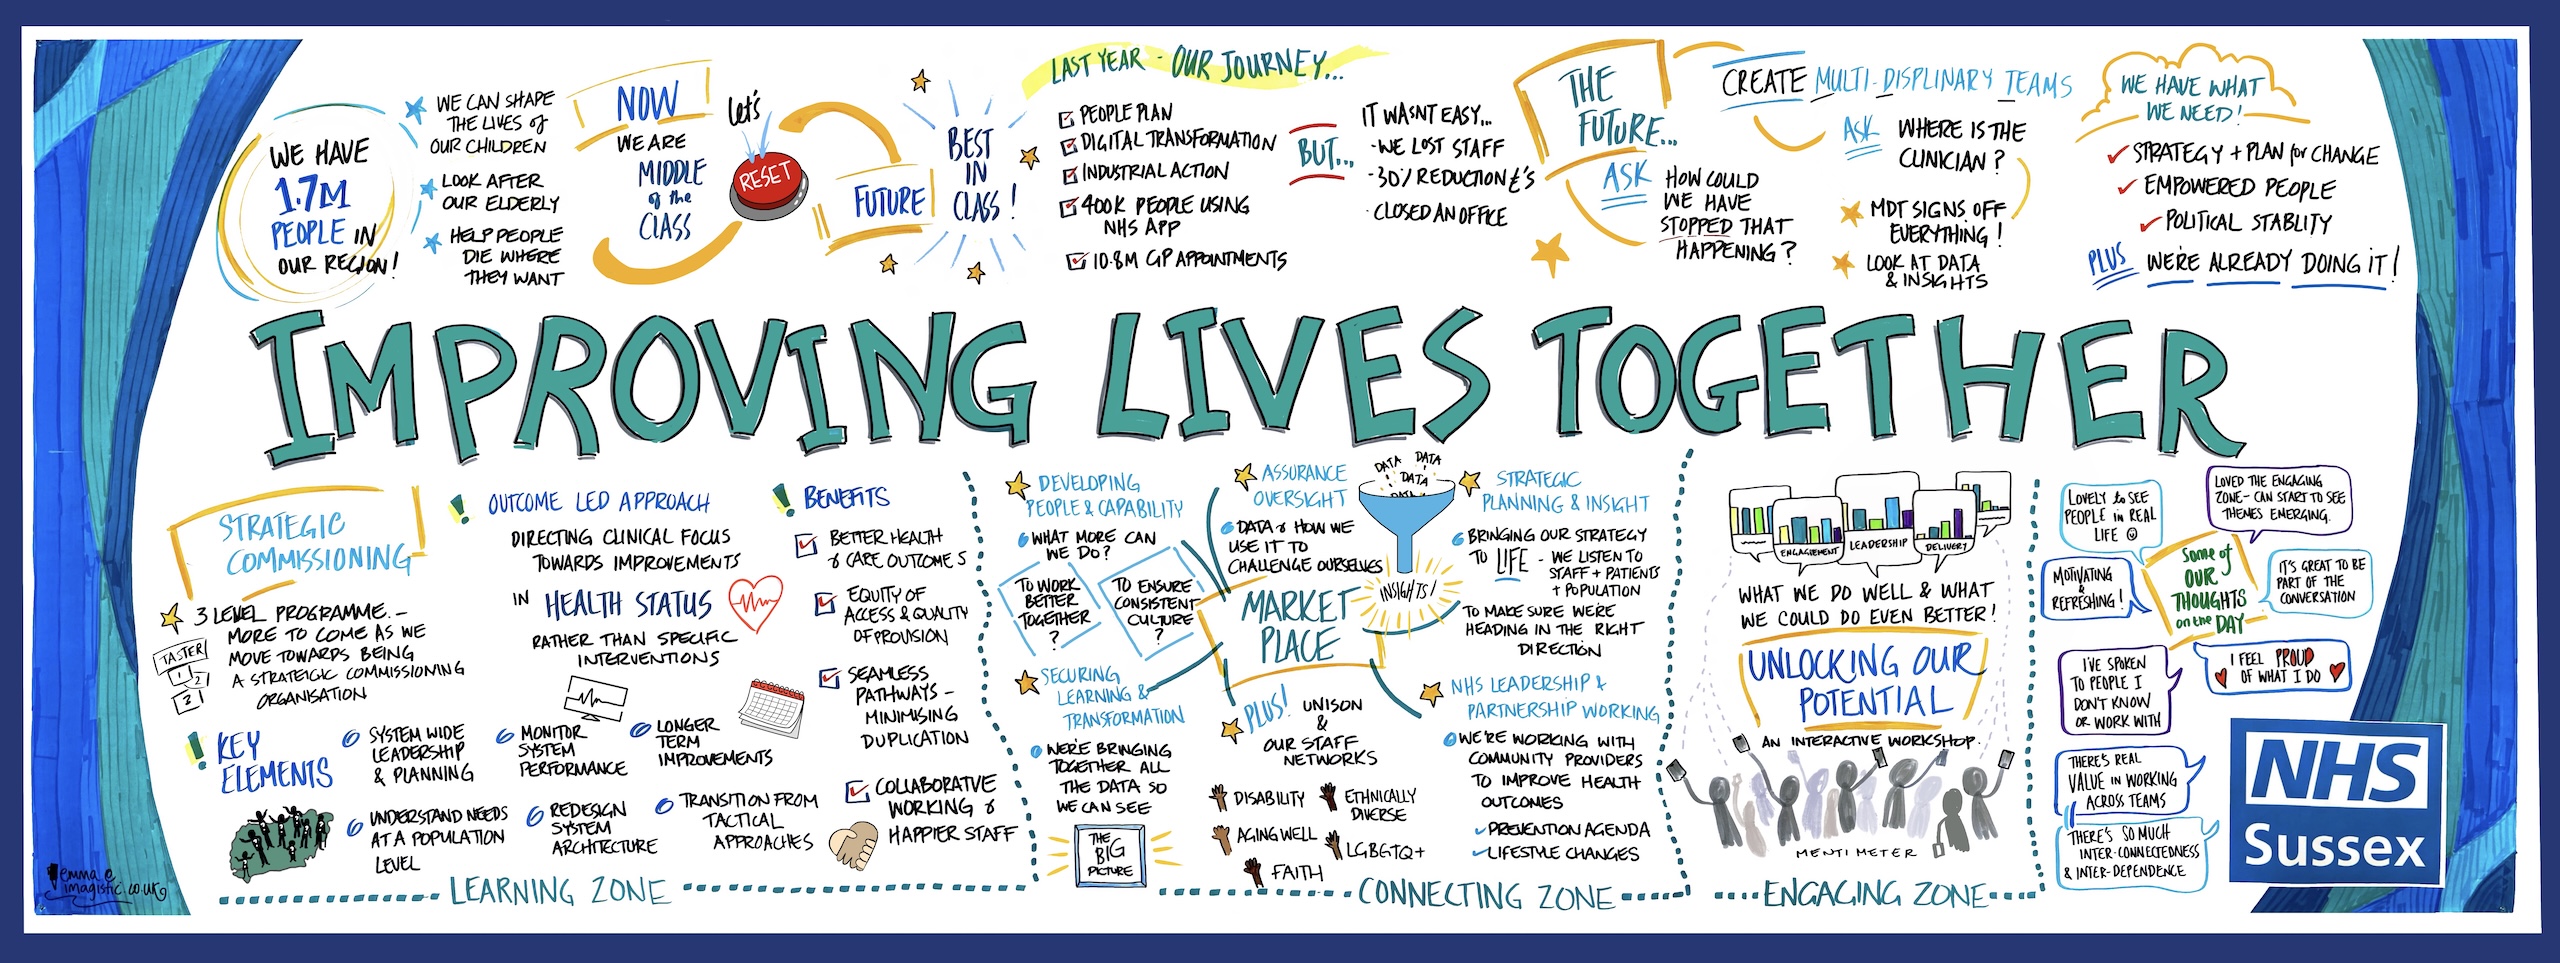 WE HAVE
1.7M
PEOPLE IN
OUR REGION!
WE CAN SHAPE
THE LIVES of
OUR CHILDREN
LOOK AFTER
OUR ELDERLY
HELP PEOPLE
DIE WHERE
THEY WANT
NOW
WE ARE
MIDDLE
of the
CLASS
Let's
RESET
FUTURE
BEST
IN
CLASS!
LAST YEAR - OUR JOURNEY...
PEOPLE PLAN
DIGITAL TRANSFORMATION
INDUSTRIAL ACTION
400K PEOPLE USING
NHS APP
10.8M GP APPOINTMENTS
BUT...
IT WASNT EASY...
- WE LOST STAFF
- 30% REDUCTION £'s
· CLOSED AN OFFICE
THE
FUTURE...
ASK
HOW COULD
WE HAVE
STOPPED THAT
HAPPENING?
CREATE MULTI-DISPLINARY TEAMS
ASK WHERE IS THE
CLINICIAN?
MDT SIGNS OFF
EVERYTHING!
LOOK AT DATA
& INSIGHTS
WE HAVE WHAT
WE NEED!
STRATEGY + PLAN for CHANGE
EMPOWERED PEOPLE
POLITICAL STABLITY
PLUS WE'RE ALREADY DOING IT!
IMPROVING LIVES TOGETHER
STRATEGIC
COMMISSIONING
3 LEVEL PROGRAMME. -
MORE TO COME AS WE
MOVE TOWARDS BEING
A STRATEGIC COMMISSIONING
ORGANISATION
TASTER
1
2
3
! OUTCOME LED APPROACH
DIRECTING CLINICAL FOCUS
TOWARDS IMPROVEMENTS
IN HEALTH STATUS
RATHER THAN SPECIFIC
INTERVENTIONS
! BENEFITS
BETTER HEALTH
& CARE OUTCOMES
EQUITY OF
ACCESS & QUALITY
OF PROVISION
SEAMLESS
PATHWAYS -
MINIMISING
DUPLICATION
COLLABORATIVE
WORKING &
HAPPIER STAFF
! KEY
ELEMENTS
SYSTEM WIDE
LEADERSHIP
& PLANNING
MONITOR
SYSTEM
PERFORMANCE
LONGER
TERM
IMPROVEMENTS
UNDERSTAND NEEDS
AT A POPULATION
LEVEL
REDESIGN
SYSTEM
ARCHITECTURE
TRANSITION FROM
TACTICAL
APPROACHES
emma @
imagistic.co.uk
LEARNING ZONE
DEVELOPING
PEOPLE & CAPABILITY
WHAT MORE CAN
WE DO?
TO WORK
BETTER
TOGETHER
?
TO ENSURE
CONSISTENT
CULTURE
?
SECURING
LEARNING &
TRANSFORMATION
WE'RE BRINGING
TOGETHER ALL
THE DATA SO
WE CAN SEE
THE
BIG
PICTURE
ASSURANCE
OVERSIGHT
DATA & HOW WE
USE IT TO
CHALLENGE OURSELVES
DATA
DATA
DATA
DATA
INSIGHTS!
MARKET
PLACE
PLUS! UNISON
&
OUR STAFF
NETWORKS
DISABILITY
ETHNICALLY
DIVERSE
AGING WELL
LGBGTQ+
FAITH
STRATEGIC
PLANNING & INSIGHT
BRINGING OUR STRATEGY
TO LIFE - WE LISTEN TO
STAFF + PATIENTS
+ POPULATION
TO MAKE SURE WE'RE
HEADING IN THE RIGHT
DIRECTION
NHS LEADERSHIP &
PARTNERSHIP WORKING
WE'RE WORKING WITH
COMMUNITY PROVIDERS
TO IMPROVE HEALTH
OUTCOMES
PREVENTION AGENDA
LIFESTYLE CHANGES
CONNECTING ZONE
ENGAGEMENT
LEADERSHIP
DELIVERY
WHAT WE DO WELL & WHAT
WE COULD DO EVEN BETTER!
UNLOCKING OUR
POTENTIAL
AN INTERACTIVE WORKSHOP.
MENTI METER
ENGAGING ZONE
LOVELY to SEE
PEOPLE in REAL
LIFE
LOVED THE ENGAGING
ZONE - CAN START TO SEE
THEMES EMERGING.
MOTIVATING
&
REFRESHING!
Some of
OUR
THOUGHTS
on the DAY
IT'S GREAT TO BE
PART OF THE
CONVERSATION
I'VE SPOKEN
TO PEOPLE I
DON'T KNOW
OR WORK WITH
I FEEL PROUD
OF WHAT I DO
THERE'S REAL
VALUE IN WORKING
ACROSS TEAMS
THERE'S SO MUCH
INTER-CONNECTEDNESS
& INTER-DEPENDENCE
NHS
Sussex